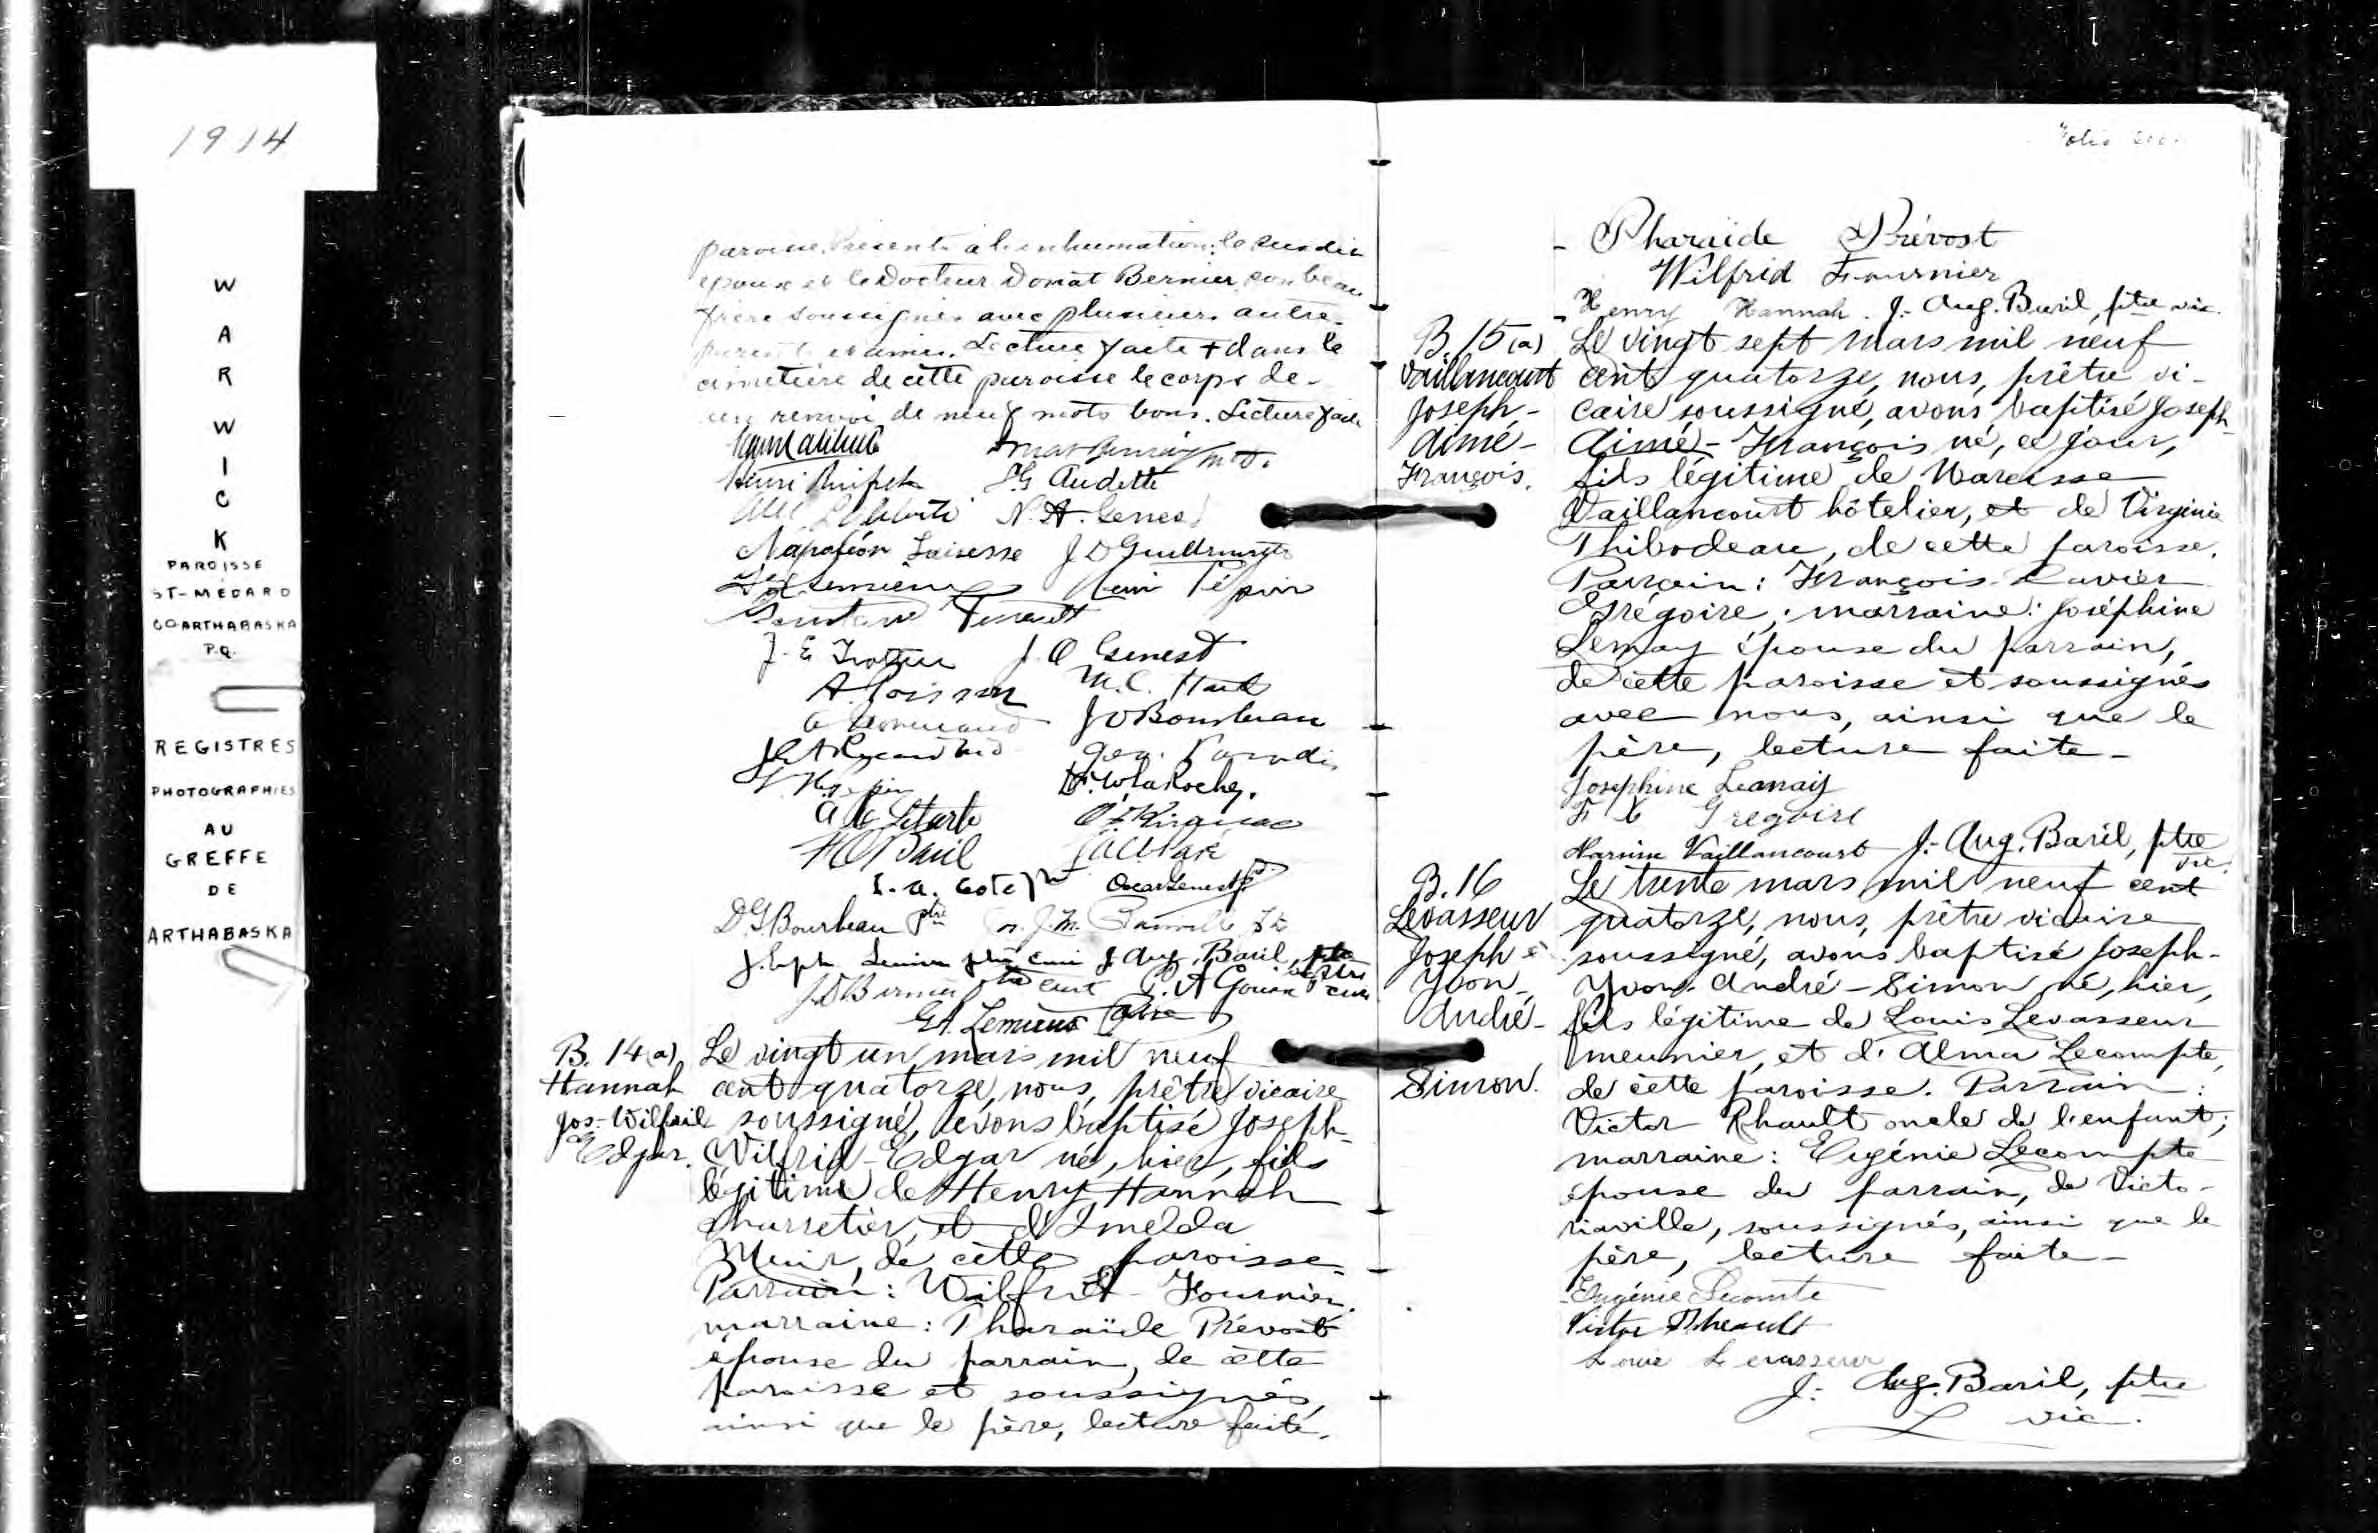 1914
W
A
R
W
I
C
K
PAROISSE
ST-MÉDARD
CO ARTHABASKA
P.Q.
REGISTRES
PHOTOGRAPHIES
AU
GREFFE
DE
ARTHABASKA
paroisse. Présents à l'inhumation: le susdit
époux et le Docteur Donat Bernier, son beau
frère soussignés avec plusieurs autres
parents et amis. Lecture faite + dans le
cimetière de cette paroisse le corps de-
un renvoi de neuf mots bons. Lecture faite
M.D.
Henri Audette
N. A. Genest
Napoléon Laisesse
Henri Pépin
J. E. J. O. Genest
A. Poisson M. C.
J O Bourbeau
Geo.
W. LaRoche
H O Baril
L. A. Côté Oscar Genest
D. G. Bourbeau Ptre
J. Eph. ptre curé J. Aug. Baril, ptre
J. D Bernier ptre curé P. A Gouin ptre curé
E. A. Lemieux Ptre
B. 14 (a)
Hannah
Jos-Wilfrid
Edgar.
Le vingt un mars mil neuf
cent quatorze, nous, prêtre vicaire
soussigné, avons baptisé Joseph-
Wilfrid-Edgar né, hier, fils
légitime de Henry Hannah
charretier, et d'Imelda
Muir, de cette paroisse-
Parrain: Wilfrid-Fournier.
marraine: Pharaïde Prévost
épouse du parrain, de cette
paroisse et soussignés,
ainsi que le père, lecture faite.
Folio
Pharaïde Prévost
Wilfrid Fournier
Henry Hannah. J.- Aug. Baril, ptre vic.
B. 15 (a)
Vaillancourt
Joseph-
Aimé-
François.
Le vingt sept mars mil neuf
cent quatorze, nous, prêtre vi-
caire soussigné, avons baptisé Joseph-
Aimé-François né, ce jour,
fils légitime de Narcisse
Vaillancourt hôtelier, et de Virginie
Thibodeau, de cette paroisse.
Parrain: François-Xavier
Grégoire; marraine: Joséphine
Lemay épouse du parrain,
de cette paroisse et soussignés
avec nous, ainsi que le
père, lecture faite-
Josephine Lemay
F X Gregoire
Narsise Vaillancourt J.- Aug. Baril, ptre
vic.
B. 16
Levasseur
Joseph
Yvon-
André-
Simon.
Le trente mars mil neuf cent
quatorze, nous, prêtre vicaire
soussigné, avons baptisé Joseph-
Yvon-André-Simon né, hier,
fils légitime de Louis Levasseur
meunier, et d'Alma Lecompte,
de cette paroisse. Parrain:
Victor Rhault oncle de l'enfant;
marraine: Eugénie Lecompte
épouse du parrain, de Victo-
riaville, soussignés, ainsi que le
père, lecture faite-
Eugénie Lecomte
Victor Rheault
Louis Levasseur
J.- Aug. Baril, ptre
vic.